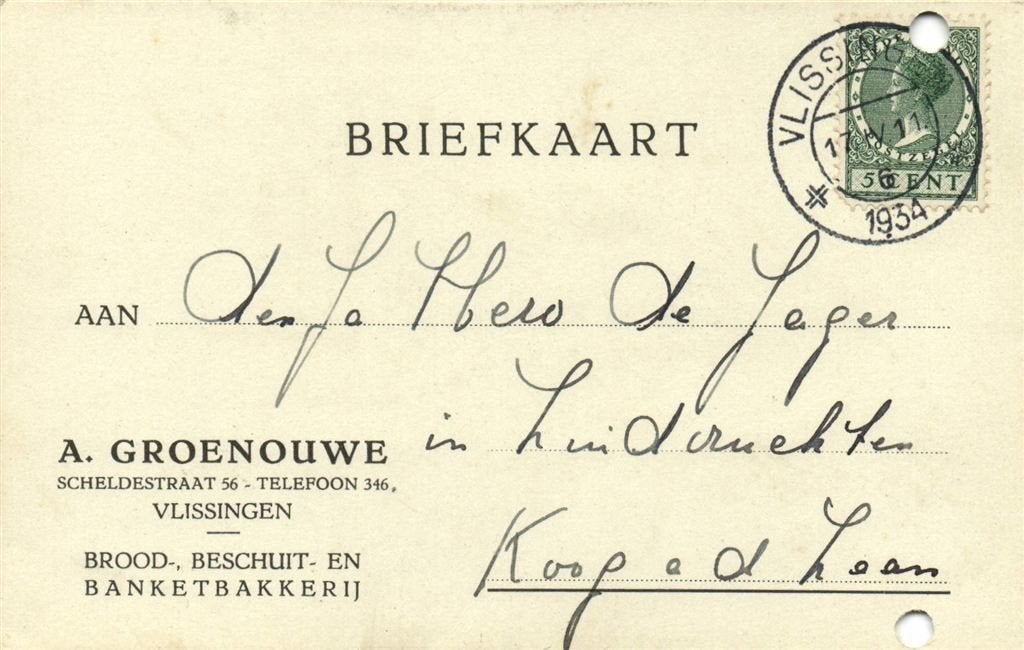 BRIEFKAART
VLISSINGEN
1934
5 CENT
POSTZEGEL
AAN den Fa Hero de Jager
in Zuidvruchten
Koog a d Zaan
A. GROENOUWE
SCHELDESTRAAT 56 - TELEFOON 346,
VLISSINGEN
BROOD-, BESCHUIT- EN
BANKETBAKKERIJ